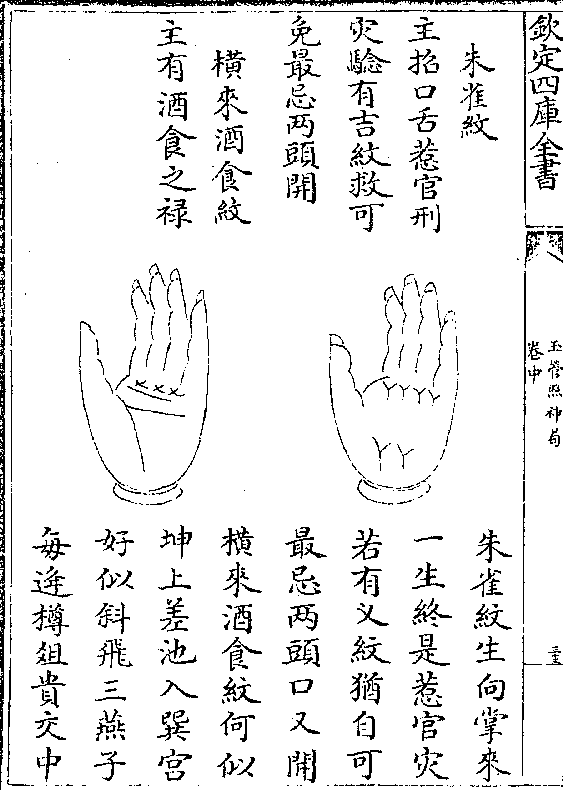 欽定四庫全書
玉管照神局
卷中
朱雀紋
主招口舌惹官刑
灾驗有吉紋救可
免最忌两頭開
橫來酒食紋
主有酒食之禄
朱雀紋生向掌來
一生終是惹官灾
若有乂紋猶自可
最忌两頭口又開
橫來酒食紋何似
坤上差池入巽宮
好似斜飛三燕子
每逢樽俎貴交中